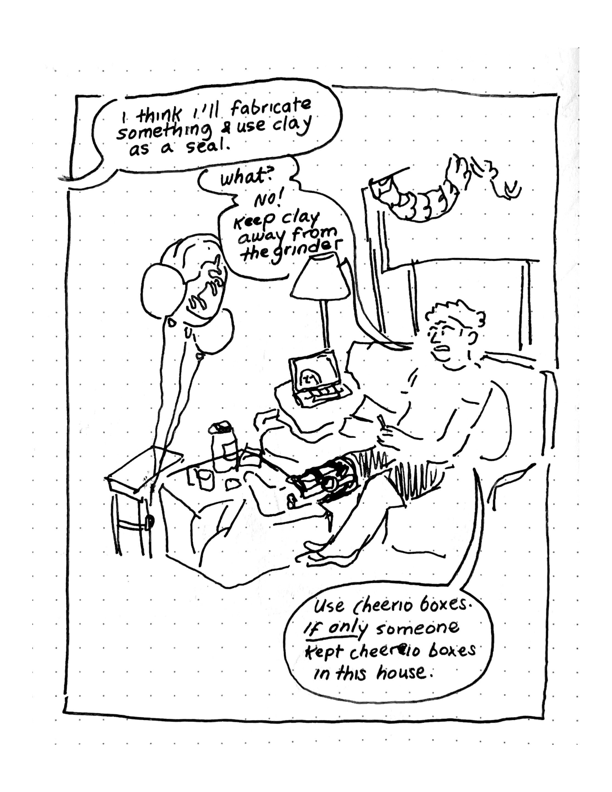 I think I'll fabricate
something & use clay
as a seal.
What?
NO!
Keep clay
away from
the grinder
Use cheerio boxes.
If only someone
kept cheerio boxes
in this house.